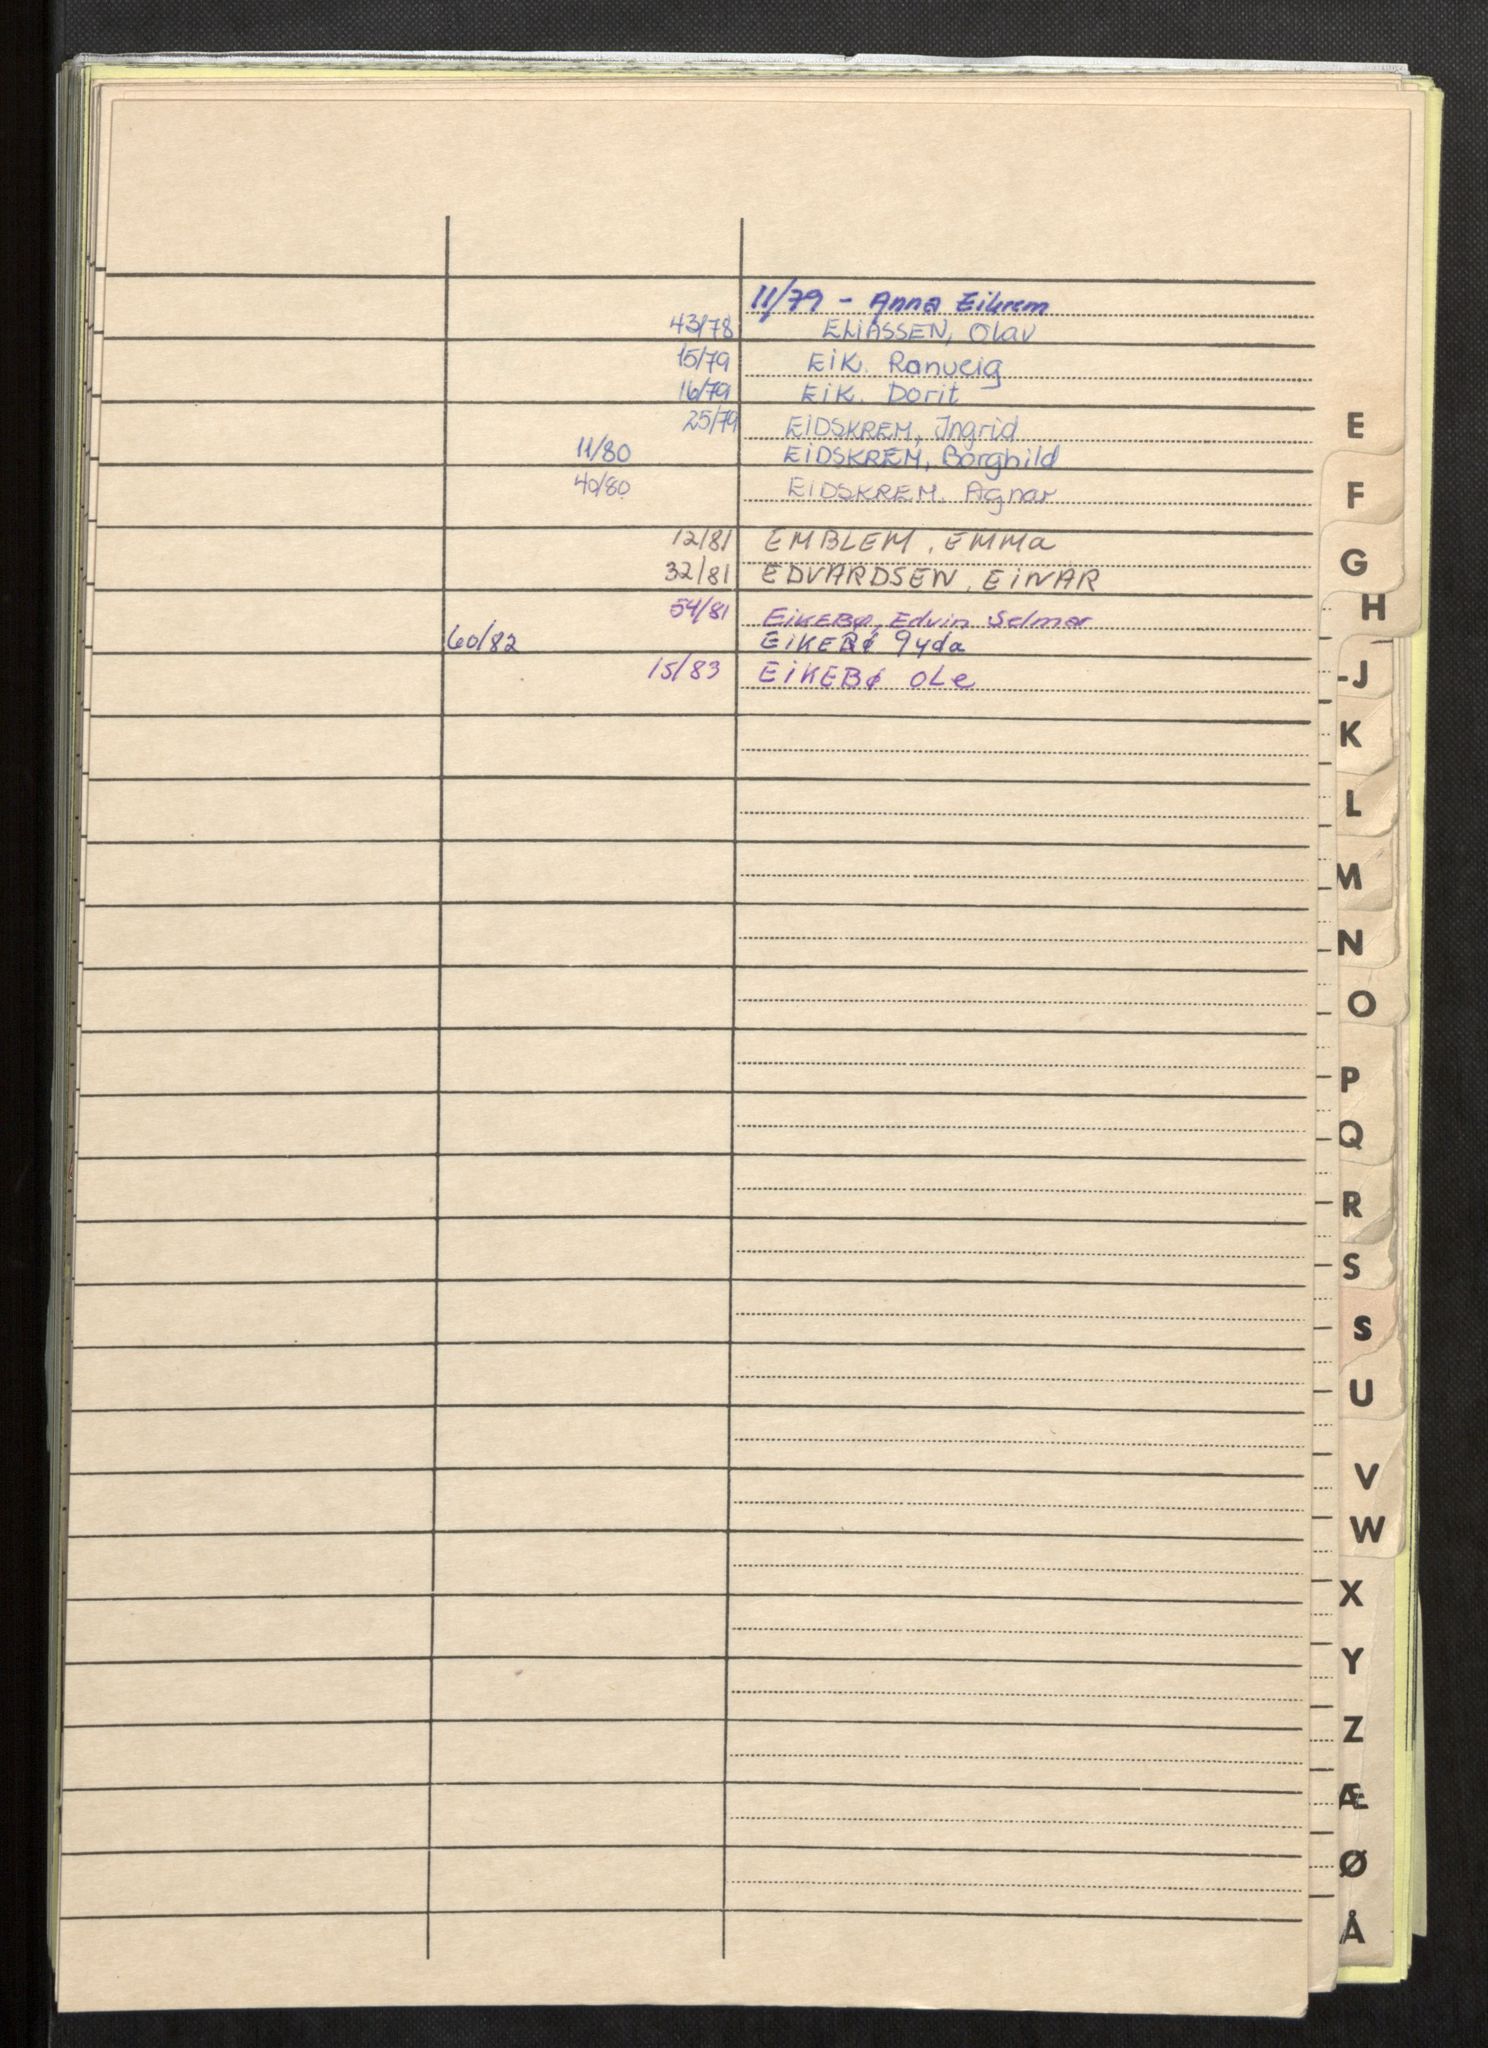 11/79 - Anna Eikrem
43/78 ELIASSEN, Olav
15/79 EIK. Ranveig
16/79 EIK. Dorit
25/79 EIDSKREM, Ingrid
11/80 EIDSKREM, Borghild
40/80 EIDSKREM, Agnar
12/81 EMBLEM, EMMa
32/81 EDVARDSEN, EINAR
54/81 EIKEBØ, Edvin Selmer
60/82 EIKEBØ Gyda
15/83 EIKEBØ OLe
E
F
G
H
-J
K
L
M
N
O
P
Q
R
S
S
U
V
W
X
Y
Z
Æ
Ø
Å